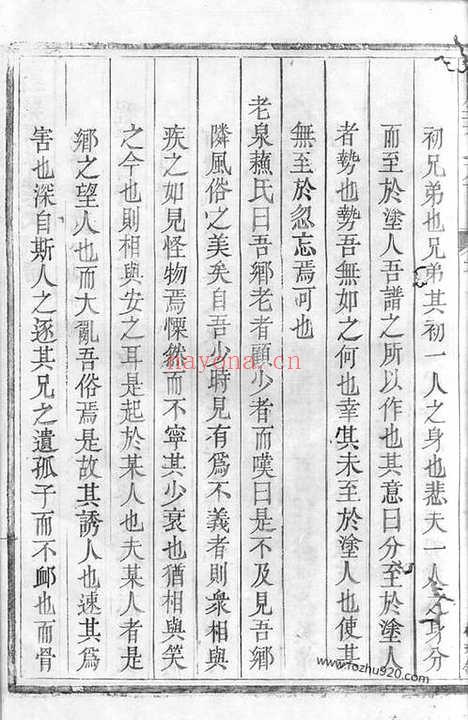 初兄弟也兄弟其初一人之身也悲夫一人之身分
而至於塗人吾譜之所以作也其意曰分至於塗人
者勢也勢吾無如之何也幸其未至於塗人也使其
無至於忽忘焉可也
老泉蘓氏曰吾鄉老者顧少者而嘆曰是不及見吾鄉
隣風俗之美矣自吾少時見有爲不義者則衆相與
疾之如見怪物焉慄然而不寧其少衰也猶相與笑
之今也則相與安之耳是起於某人也夫某人者是
鄉之望人也而大亂吾俗焉是故其誘人也速其爲
害也深自斯人之逐其兄之遺孤子而不䘏也而骨
nayona.cn
www.fozhu920.com